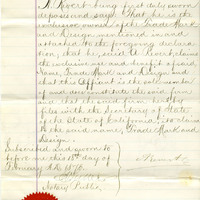 A. Rivert being first duly sworn
deposes and says: That he is the
exclusive owner of the Trade Mark
and Design mentioned in and
attached to the foregoing declara-
tion, that he, said A. Rivert,
claims the exclusive use and benefit of said
Name, Trade Mark and Design and
that this Affiant is the sole member
of and does constitute the said firm
and that the said firm hereby
files with the Secretary of State
of the State of California its claim
to the said name, Trade Mark and
Design.
Subscribed and sworn to
before me this 18th day of
February A.D. 1870.
Notary Public.